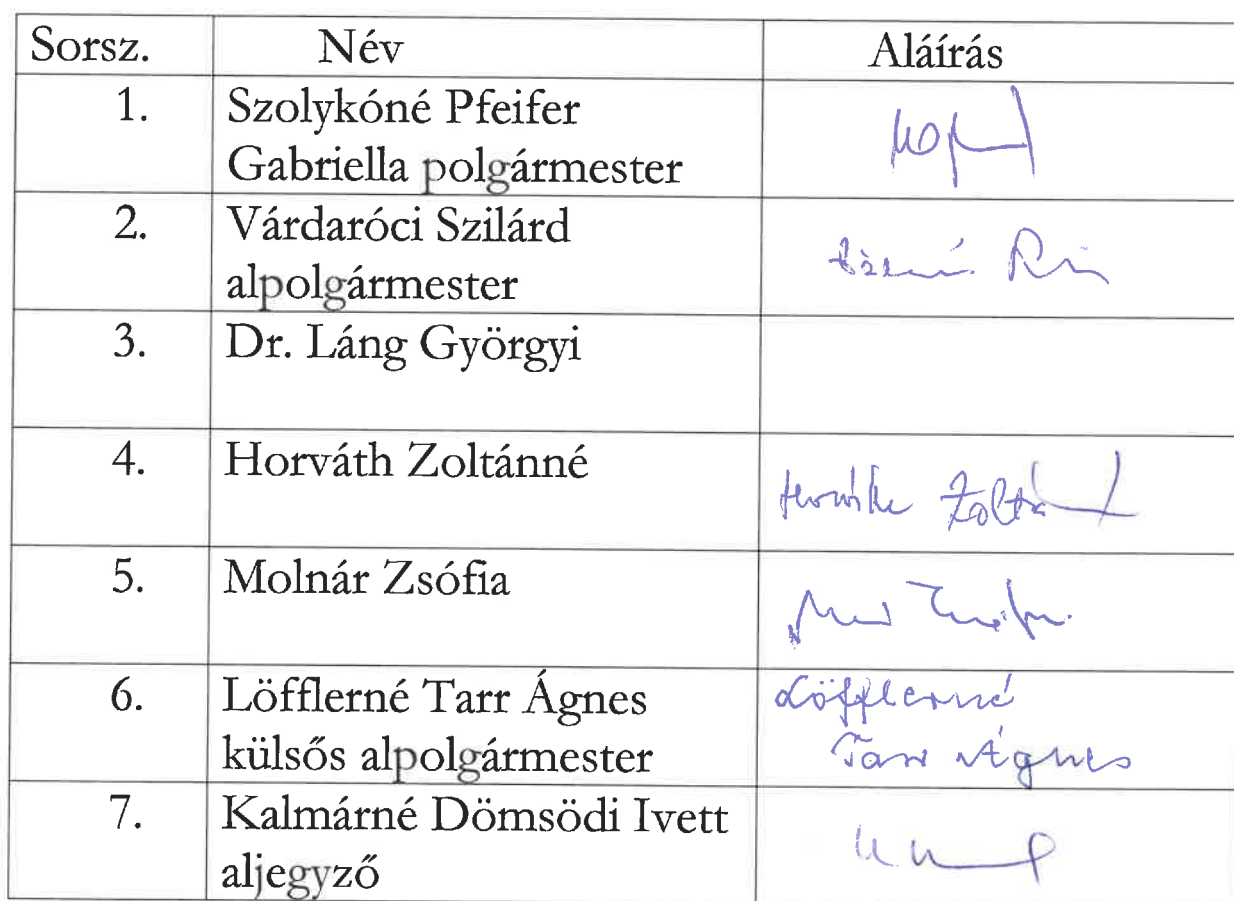 Sorsz. Név Aláírás
1. Szolykóné Pfeifer
Gabriella polgármester
2. Várdaróci Szilárd
alpolgármester
3. Dr. Láng Györgyi
4. Horváth Zoltánné
5. Molnár Zsófia
6. Löfflerné Tarr Ágnes Löfflerné
külsős alpolgármester Tarr Ágnes
7. Kalmárné Dömsödi Ivett
aljegyző